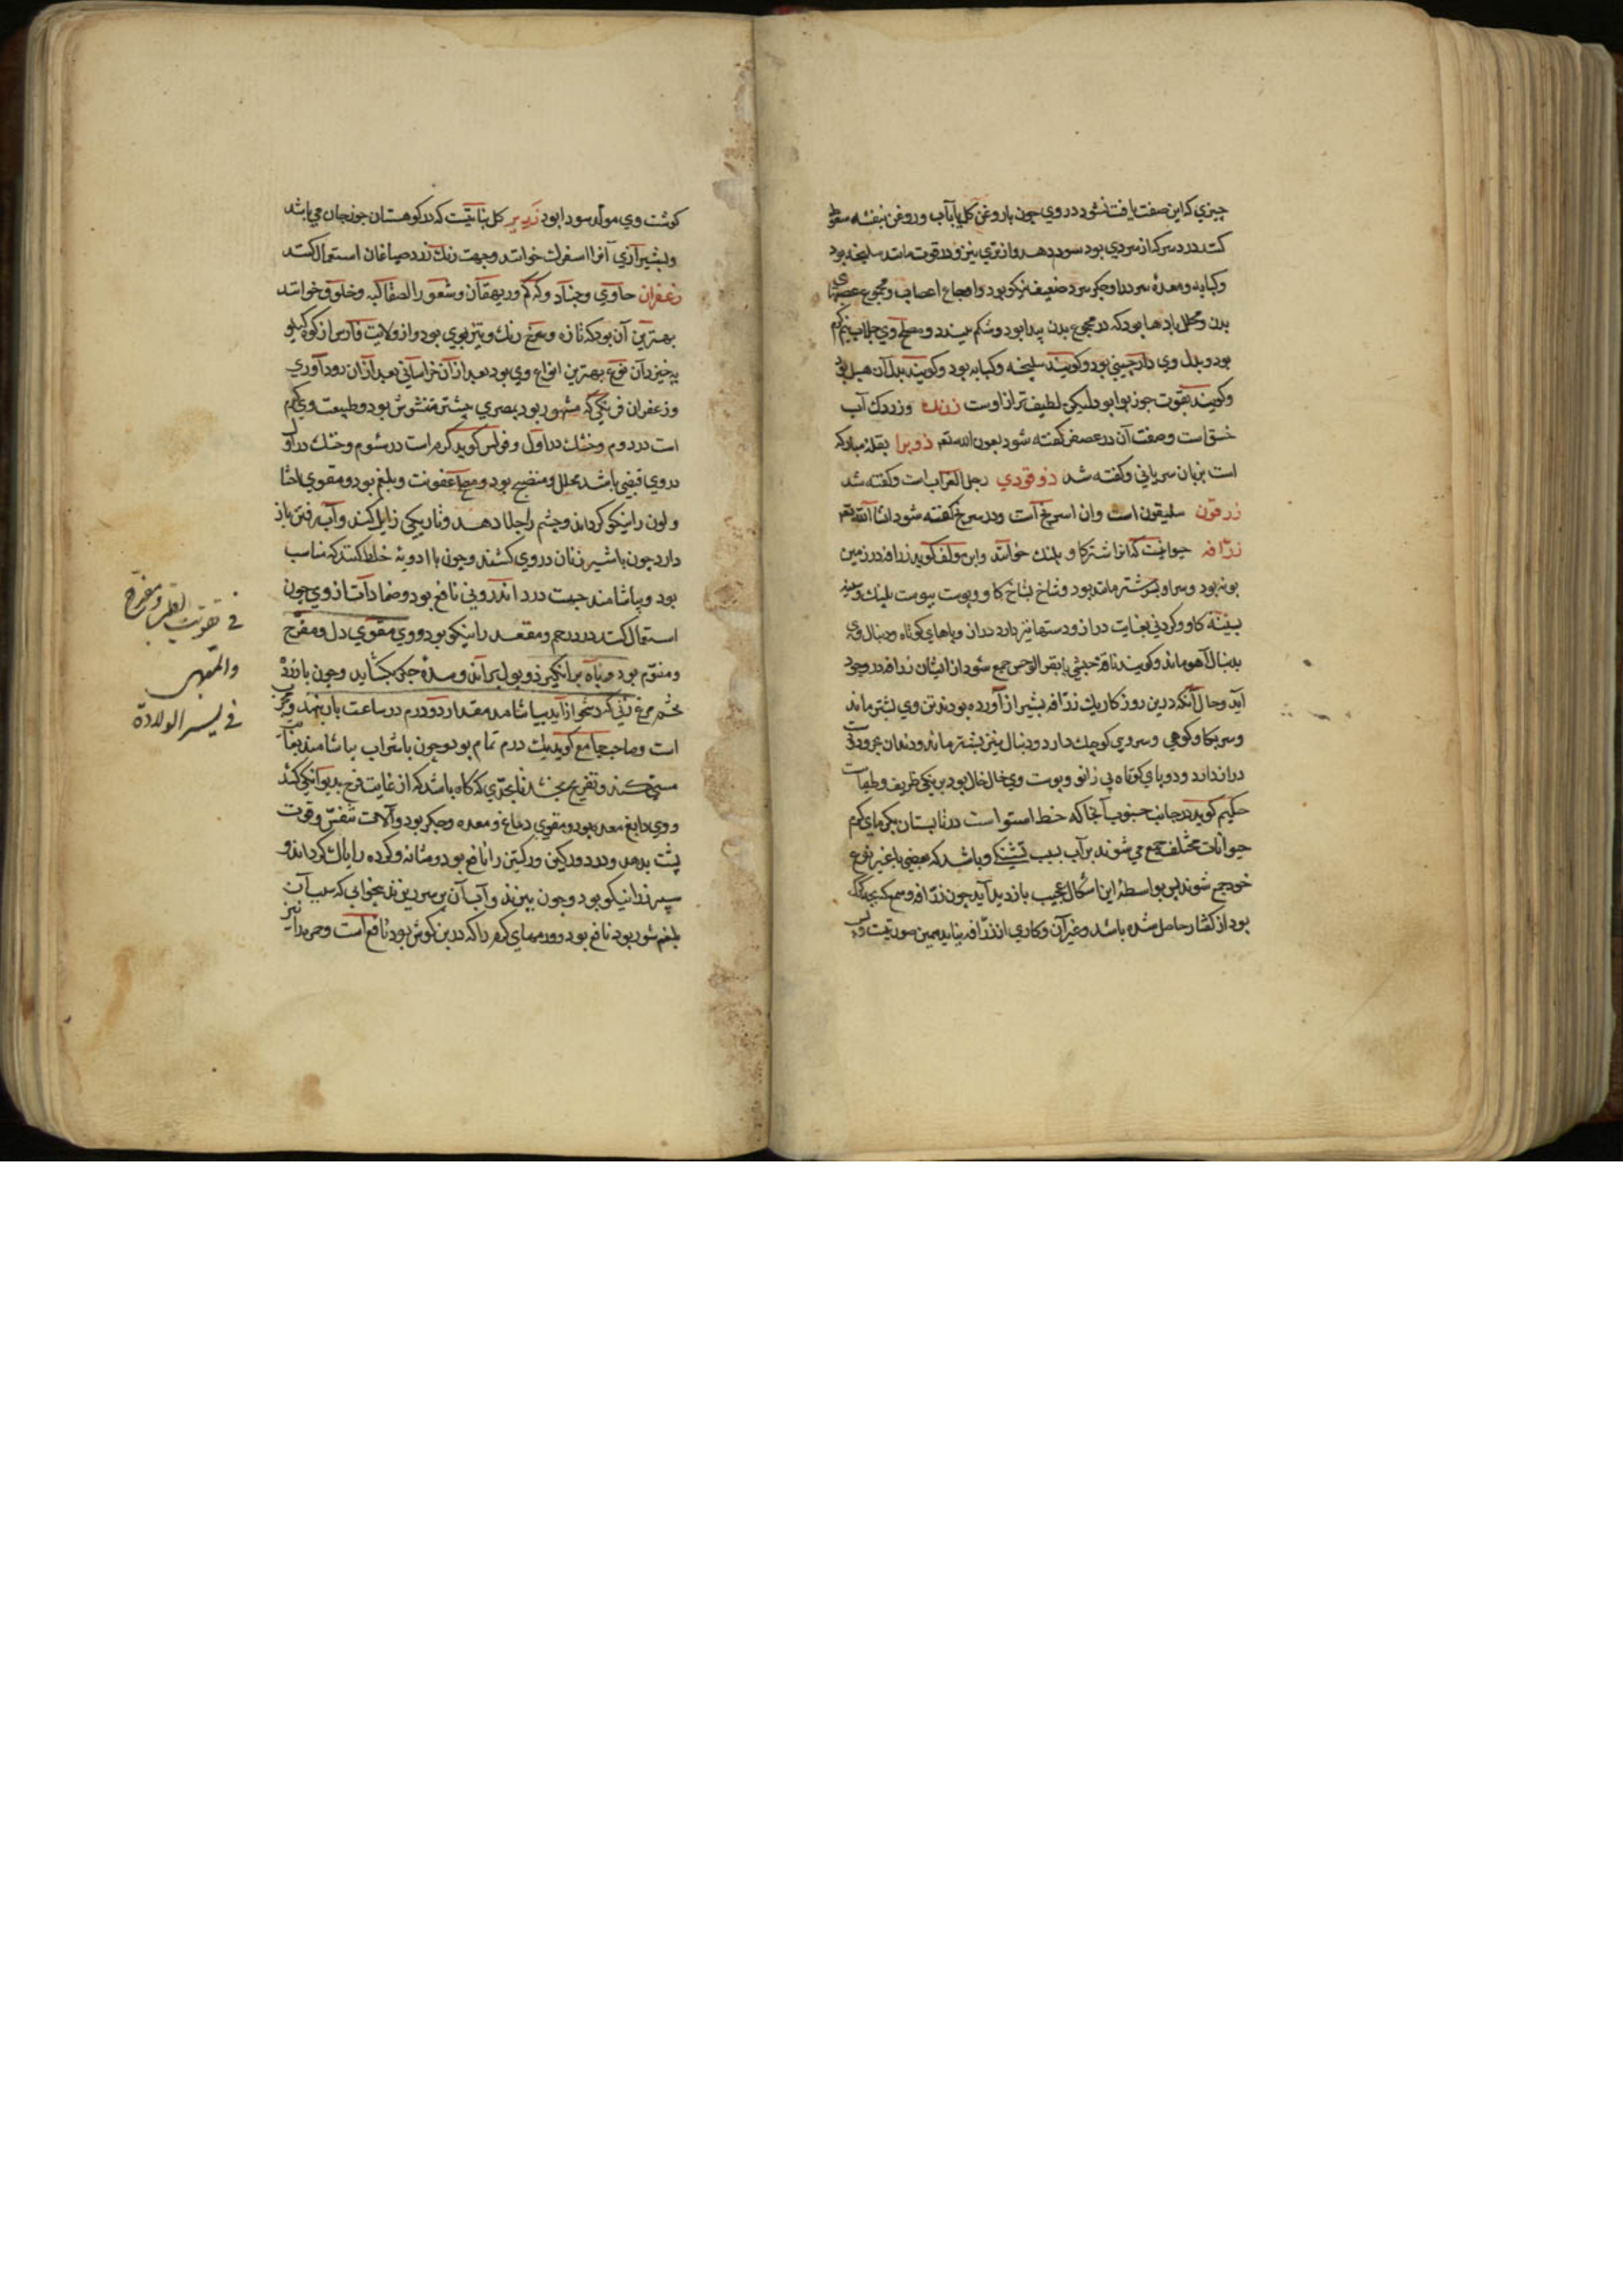 چیزی که این صفت یافت نشود در وی چون با روغن گل یا با آب و روغن بنفشه سعوط
کنند درد سر که از سردی بود سود دهد و از تری نیز و در قوت مانند سلیخه بود
و کبابه و معده سرد را و جگر سرد ضعیف نیکو بود و اوجاع اعصاب و مجموع عصبهای
بدن و محلل بادها بود که در مجموع بدن پیدا بود و شکم ببندد و مصلح وی جلاب نیم گرم
بود و بدل وی دارچینی بود و گویند سلیخه و کبابه بود و گویند بدل آن هیل بود
و گویند بقوت جوزبوا بود لیکن لطیف تر از اوست زردک وزردک آب
خسق است و صفت آن در عصفر گفته شود بعون الله تع ذوبرا بقله مبارکه
است بزبان سریانی و گفته شد ذوقودی رجل الغراب است و گفته شد
زرقون سلیقون است و ان اسرنج است و در سرنج گفته شود انشا الله تع
زرّافه حیوانیست که انرا اشترکاو پلنک خوانند و ابن مولف گوید زرافه در زمین
نوبه بود و سر او بسر شتر ماند بود و شاخ بشاخ کاو و پوست بپوست پلنک و سینه
بسینه کاو و گردنی بغایت دراز و دستها نیز دارد دراز و پاهای کوتاه و دنبال وی
بدنبال آهو ماند و گویند ناقه حبشی با بقر الوحش جمع شود از ایشان زرافه در وجود
آید و حال آنکه درین روزکار یک زرّافه بشیراز آورده بودند تن وی بشتر ماند
و سر بکاو کوهی و سروی کوچک دارد و دنبال نیز بشتر ماند و دندان
دراز ندارد و دو پای کوتاه بی زانو و پوست وی خال خال بود
حکیم گوید در جانب جنوب آنجا که خط استوا است در تابستان بگرمای گرم
حیوانات مختلف جمع می شوند بر آب بسبب تشنگی و باشد که بعضی با غیر نوع
خود جمع شوند پس بواسطه این اشکال عجیب بازدید آید چون زرّافه و سمع که بچه گرگ
بود از کفتار حاصل شده باشد و غیر آن و کاری از زرّافه نیاید همین صورتیست
گوشت وی مولد سودا بود زریر گل نباتیست که در کوهستان جوزجان می باشد
و بشیرازی آنرا اسفرک خوانند و جهت رنک زرد صباغان استعمال کنند
زعفران حاوی و جساد و کرکم و ریهقان و شعور الصفاکبه و خلوق خوانند
بهترین آن بود که تازه و سرخ رنک و تیز بوی بود و از ولایت فارس از کوه کیلو
یه خیزد آن نوع بهترین انواع وی بود بعد از آن خراسانی بعد از آن رودآوری
و زعفران فرنگی که مشهور بود بمصری بیشتر مغشوش بود و طبیعت وی گرم
است در دوم و خشک در اول و فولس گوید گرم است در سوم و خشک در اول
در وی قبضی باشد محلل و منضج بود و مصلح عفونت و بلغم بود و مقوی احشا
و لون را نیکو گرداند و چشم را جلا دهد و تاریکی زایل کند و آب رفتن باز
دارد چون با شیر زنان در وی کشند و چون با ادویه خلط کنند که مناسب
بود و بیاشامند جهت درد اندرونی نافع بود و ضمادات از وی چون
استعمال کنند در درد رحم و مقعد را نیکو بود و وی مقوی دل و مفرح
و منوّم بود و باه برانگیزد و بول براند و سده جگر بگشاید و چون با زرده
تخم مرغ زنی که دشخوار زاید بیاشامد مقدار دو درم در ساعت بار بنهد و مجرب
است و صاحب جامع گوید یک درم تمام بود و چون با شراب بیاشامند بغایت
مستی کند و تفریح بخشد تا بحدّی که گاه باشد که از غایت فرح بدیوانگی کشد
و وی دابغ معده بود و مقوی دماغ و معده و جگر بود و آلات تنفس و قوت
پشت بدهد و درد ورکین و رکبتین را نافع بود و مثانه و گرده را پاک گرداند و
سپرز را نیکو بود و چون بپزند و آب آن بر سر ریزند بیخوابی که سبب آن
بلغم شور بود نافع بود و ورمهای گرم را که در بن گوش بود نافع است و حمره را نیز
فی تقویت القلب و مفرح
والمبهی
فی لیسر الولادة